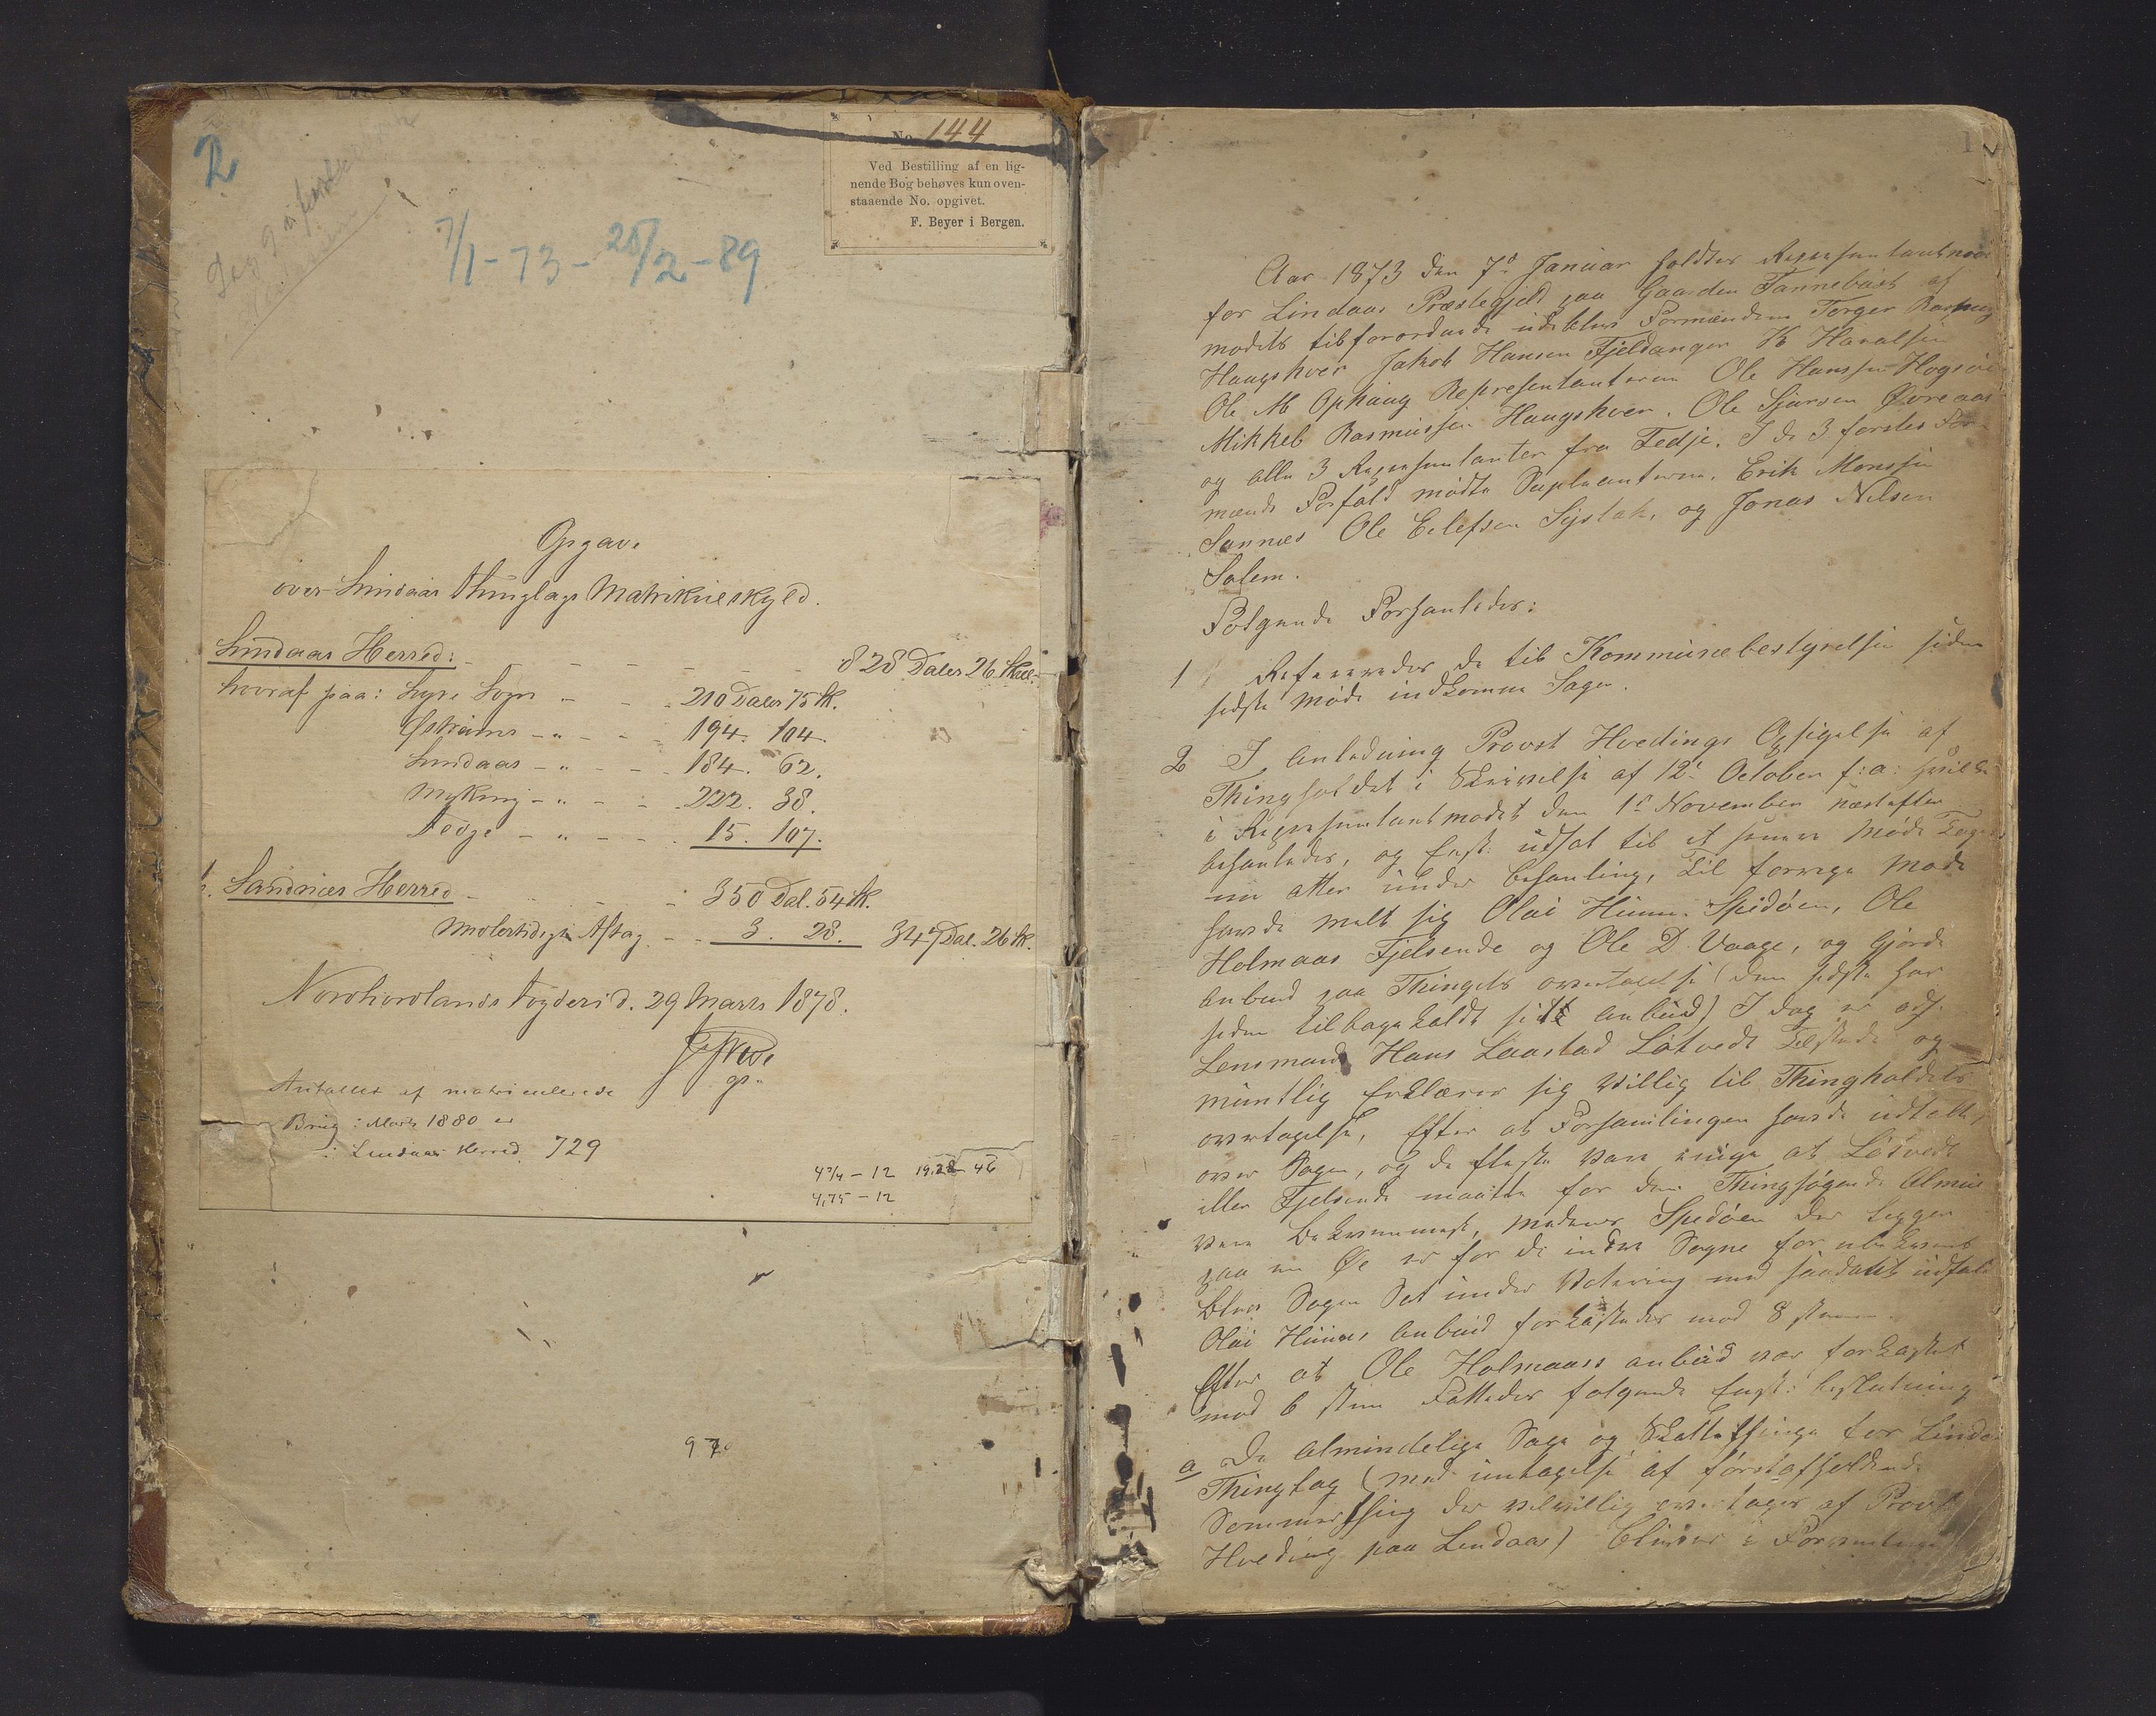 2
7/1-73-28/2-89
No. 144
Ved Bestilling af en lig-
nende Bog behøves kun oven-
staaende No. opgivet.
F. Beyer i Bergen.
Opgave
over Lindaas Thinglags Matrikuleskyld.
Lindaas Herred: - - - - - - 828 Daler 26 Skill.
hvoraf paa: Lyre Sogn - - - 210 Daler 75 sk.
Østreims - " - - - 194. 104.
Lindaas - " - - - 184. 62.
Myking - " - - 222. 38.
Fedje - " - - - 15. 107.
Sandnæs Herred - - - 350 Dal. 54 sk.
Midlertidigt Afslag - - 3. 28. 347 Dal. 26 sk.
Nordhordlands Fogderi d. 29 Marts 1878.
Antallet af matriculerede
Brug i Marts 1880 er
i Lindaas Herred 729
4 3/4 - 12 19.28 - 46
4,75 - 12
97
1
Aar 1873 den 7de Januar holdtes Repræsentantmøde
for Lindaas Præstegjeld paa Gaarden Fannebust af
modets tilforordnede udeblev Formændene Torger
Haugshver Jakob Hansen Fjeldanger K Haralsen
Ole M Ophaug Repræsentanterne Ole Hanssen
Mikkel Rasmussen Haugshver. Ole Sjursen Øvreaas
og alle 3 Repræsentanter fra Fedje. I de 3 førstes For-
mænds Forfald mødte Supleanterne. Erik Monssen
Sannæs Ole Elefsen og Jonas Nilsen
Solem.
Følgende Forhanledes:
1 Refereredes de til Kommunebestyrelsen siden
sidste Møde indkomne Sager.
2 I Anledning Provst Hvedings Opsigelse af
Thingholdet i Skrivelse af 12te October f: a: hvilke
i Repræsentantmødet den 1ste November næstefter
behanledes, og Enst: udsat til et senere Møde
nu atter under behanling, Til forrige Møde
havde melt sig Olai Spidøen, Ole
Holmaas Fjelsende og Ole D. Vaage, og gjorde
Anbud paa Thingets overtagelse (den sidste har
siden tilbagekaldt sit Anbud) I dag er ogs.
Lensmand Hans Laastad Løtvedt Tilstede og
muntlig Erklærer sig Villig til Thingholdets
overtagelse, Efter at Forsamlingen havde udtalt sig
over Sagen, og de fleste vare enige at Løtvedt
eller Fjelsende maatte for den Thingsøgende Almue
være Bekvemmest, medens Spedøen der ligger
paa en Øe er for de indre Sogne for ubekvemt
Blev Sagen Sat under Votering med saadant udfald
Olai Anbud forkastedes mod 8 stemmer
Efter at Ole Holmaass anbud var forkastet
mod 6 stem Fattedes følgende Enst: beslutning
a De Almindelige Sage og Skattethinge for Lindaas
Thinglag (med undtagelse af førstafholdende
Sommerthing der velvillig overtages af Provst
Hveding paa Lindaas)